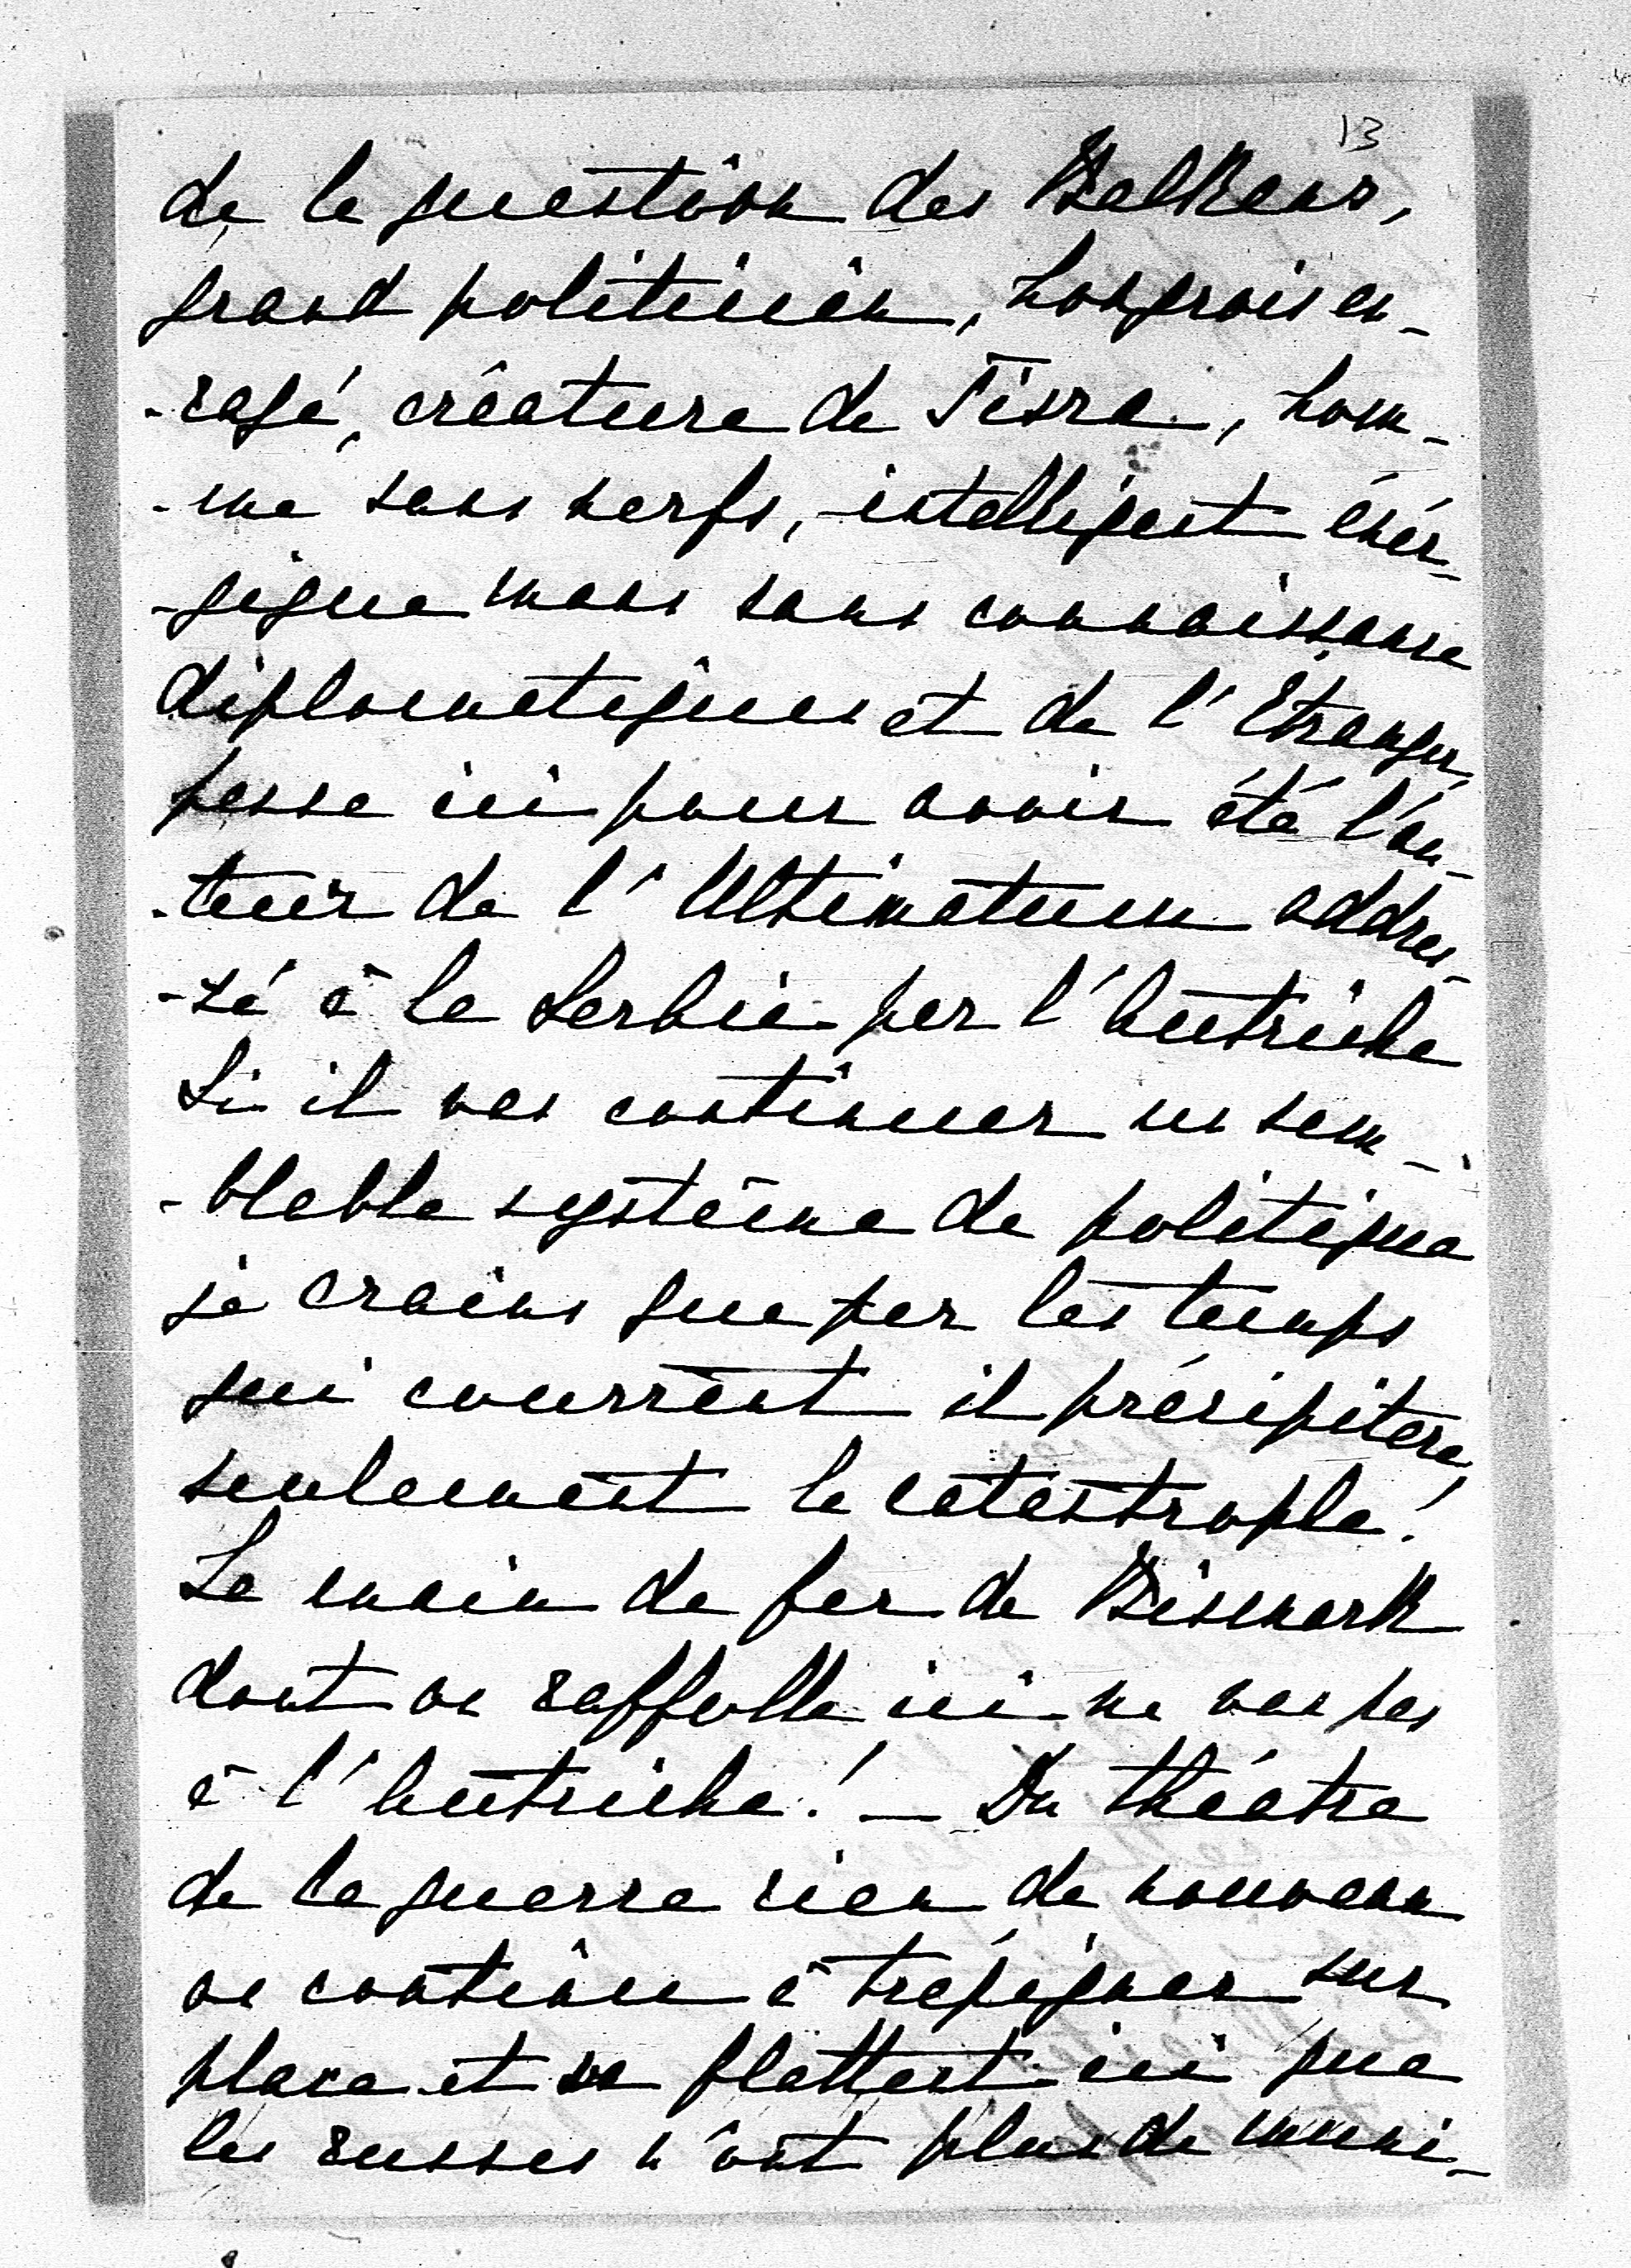 13
de la question des Balkans,
grand politicien, hongrois en-
-ragé, créature de Tisza, hom-
-me sans nerfs, intelligent éner-
-gique mais sans connaissance
diplomatiques et de l'Etranger,
passe ici pour avoir été l'au-
-teur de l'Ultimatum addres-
-sé à la Serbie par l'Autriche
Si il vas continuer un sem-
-blable système de politique
je crains que par les temps
qui courrent il précipitera,
seulement la catastrophe!
La main de fer de Bismark
dont on raffolle ici ne vas pas
à l'Autriche! — Du théatre
de la guerre rien de nouveau
on continue à trépigner sur
place et se flattent ici que
les russes n'ont plus de muni-